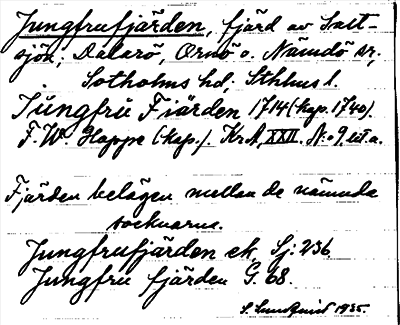 Jungfrufjärden, fjärd av Salt-
sjön; Dalarö, Ornö o. Nämdö sr,
Sotholms hd, Sthlms l.
Jungfrŭ Fiärden 1714 (kop. 1740).
F. W. Hoppe (kop.). KrA, XXII. N:o 9. lit a.
Fjärden belägen mellan de nämnda
socknarna.
Jungfrufjärden ek. Sj: 236
Jungfru fjärden G. 68.
S. Lundquist 1935.